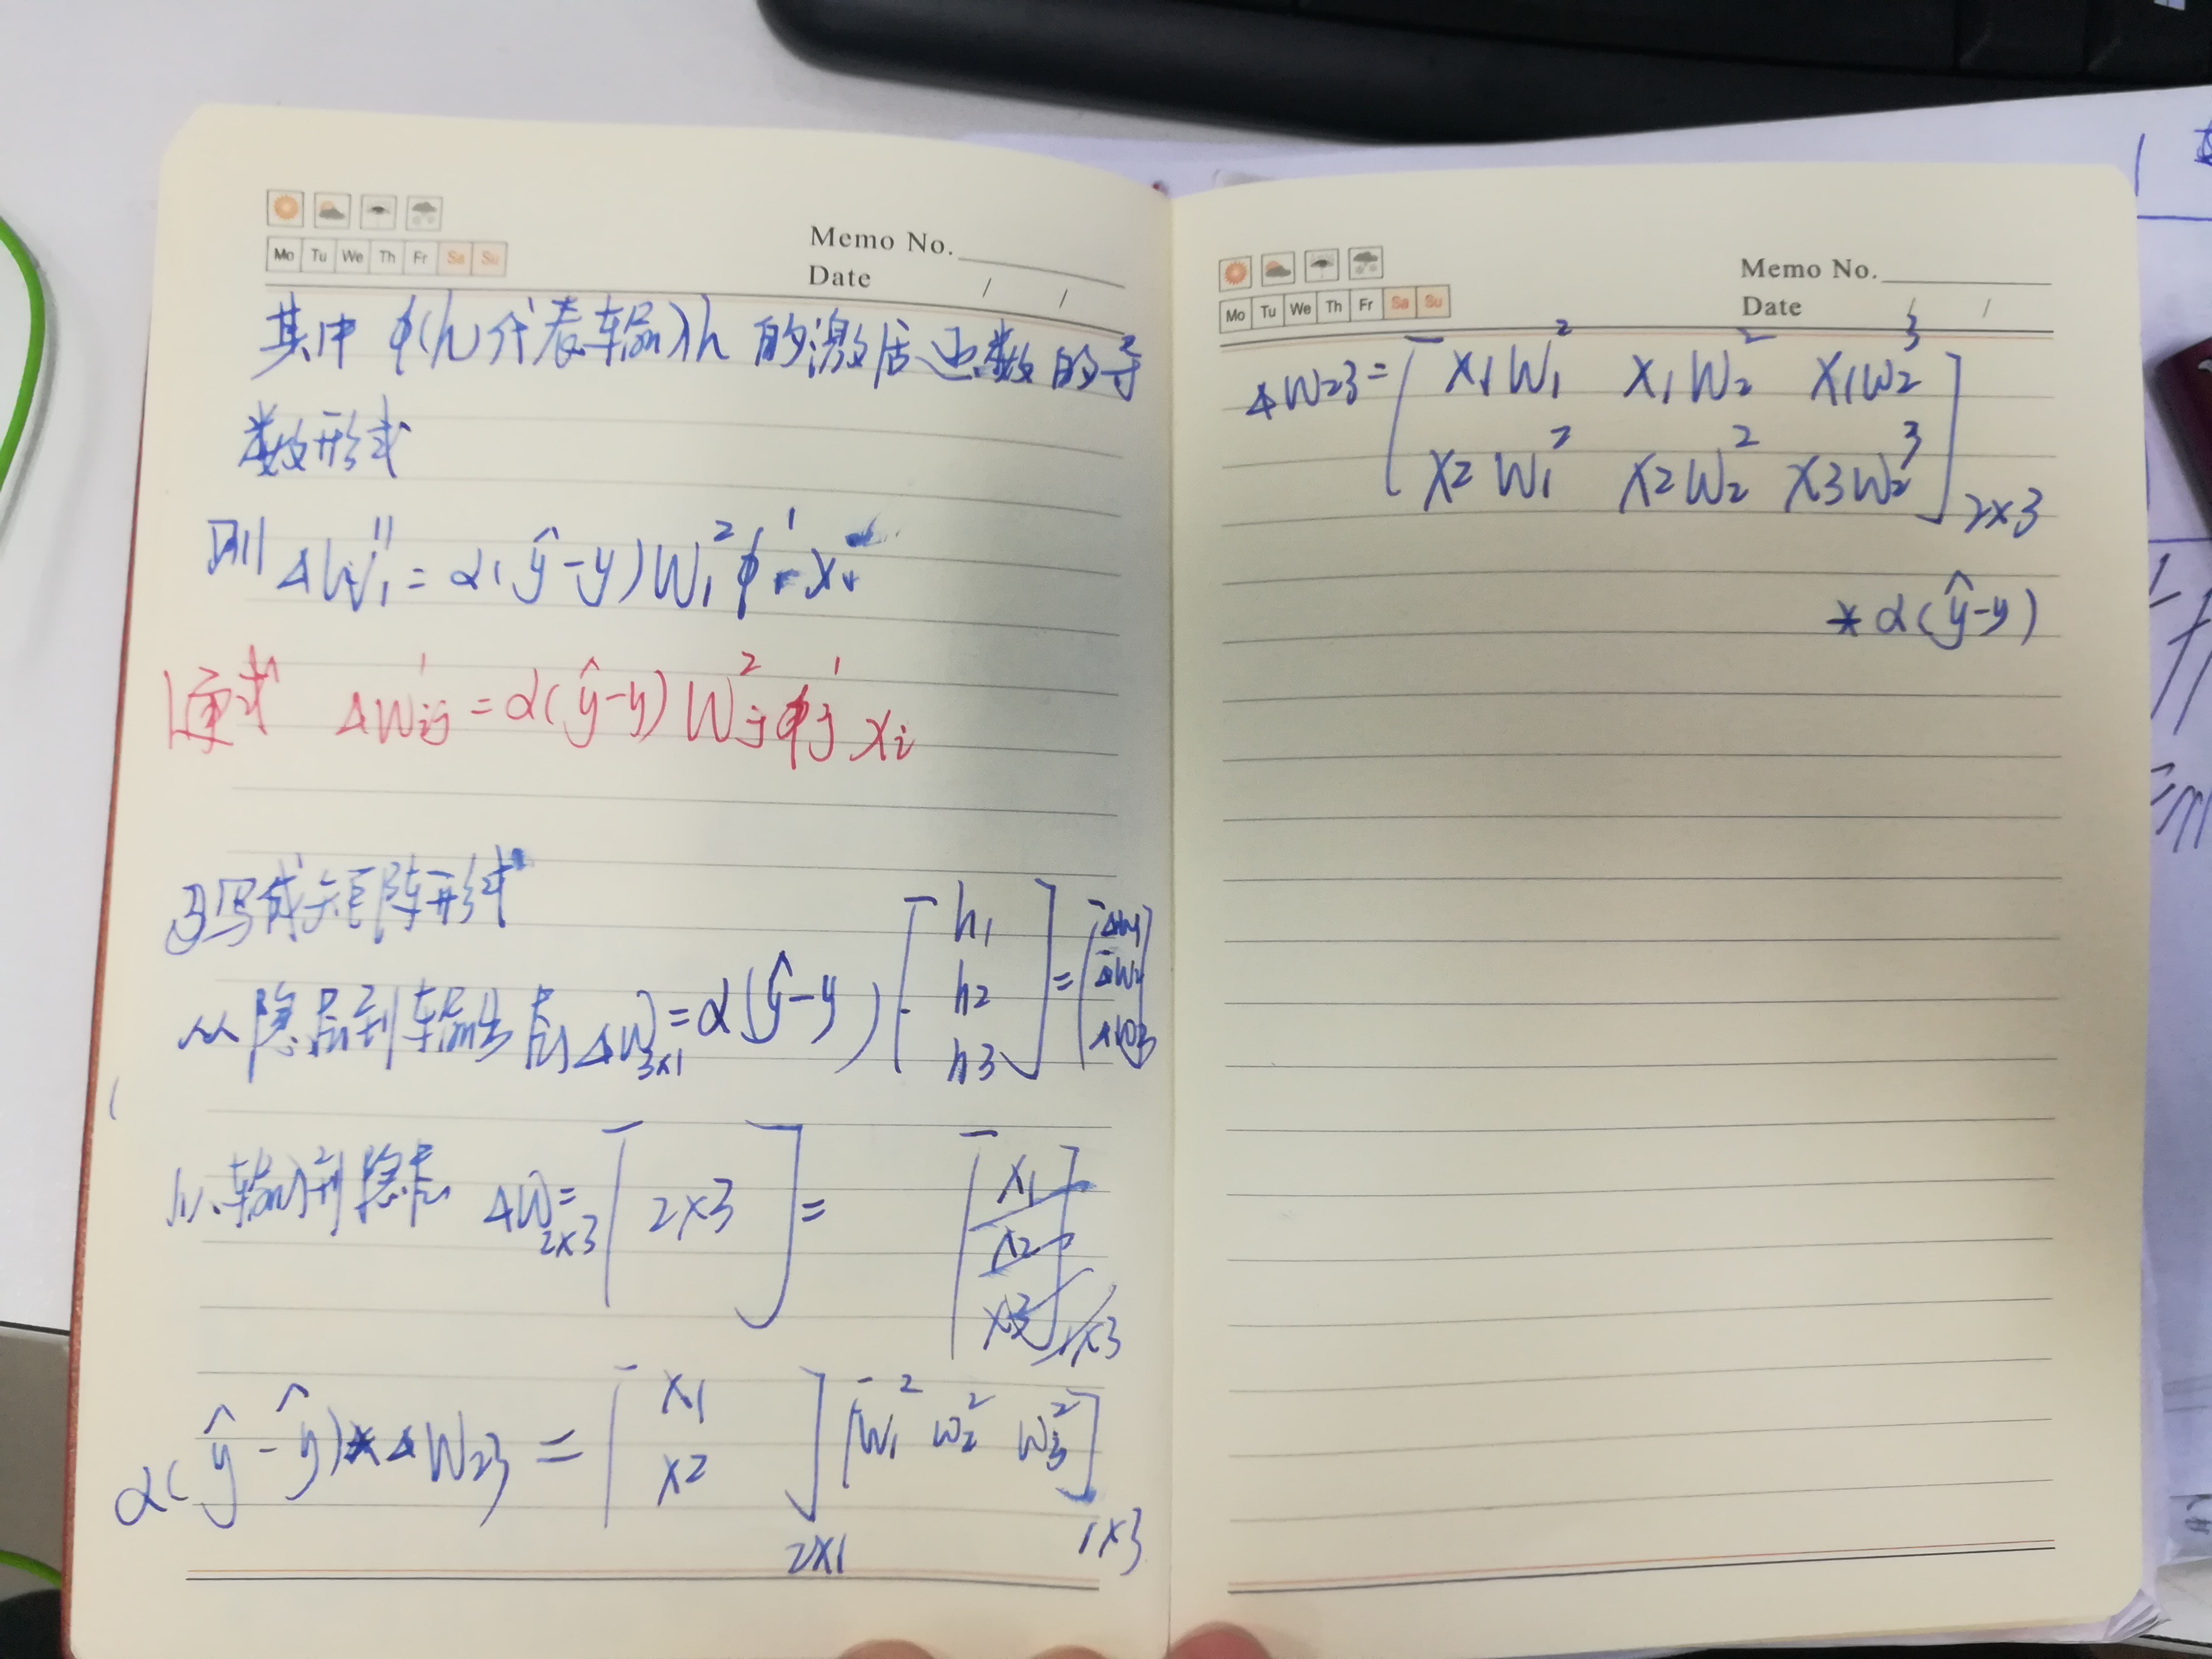 Mo Tu We Th Fr Sa Su
Memo No.
Date / /
其中 φ(h)代表输入h 的激活函数的导
数形式
则 ΔW₁¹¹ = α(ŷ-y)W₁²φ¹x
通式 ΔWij¹ = α(ŷ-y)Wj²φj¹xi
③写成矩阵形式
从隐层到输出层ΔW3x1 = α(ŷ-y)·[h1 h2 h3] = [ΔW1 ΔW2 ΔW3]
从输入到隐层 ΔW2x3 = [2x3] = [x1 x2 x3]1x3
α(ŷ-ŷ)*ΔW23 = [x1 x2]2x1 [W₁² W₂² W₃²]1x3
Mo Tu We Th Fr Sa Su
Memo No.
Date / /
ΔW23 = [x1W₁² x1W₂² x1W₂³
x2W₁² x2W₂² x3W₂³]2x3
* α(ŷ-y)